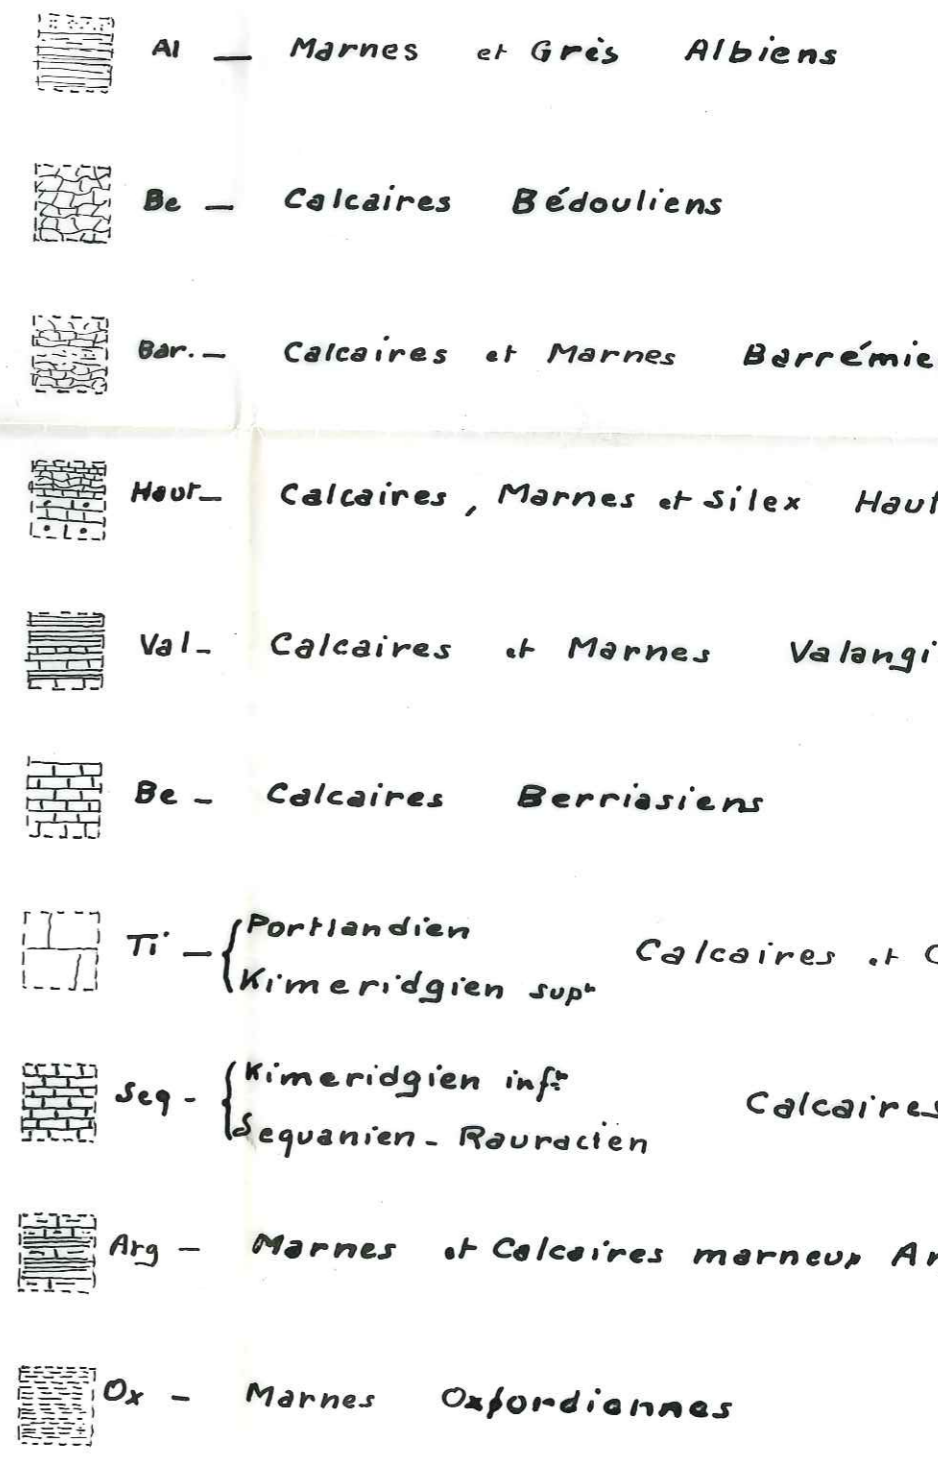 Al — Marnes et Grès Albiens
Be — Calcaires Bédouliens
Bar. — Calcaires et Marnes Barrémie
Haut — Calcaires, Marnes et Silex Haut
Val - Calcaires et Marnes Valangi
Be - Calcaires Berriasiens
Ti — { Portlandien
Kimeridgien supr Calcaires et C
Seq - { Kimeridgien infr
Sequanien - Rauracien Calcaires
Arg — Marnes et Calcaires marneux Ar
Ox - Marnes Oxfordiennes